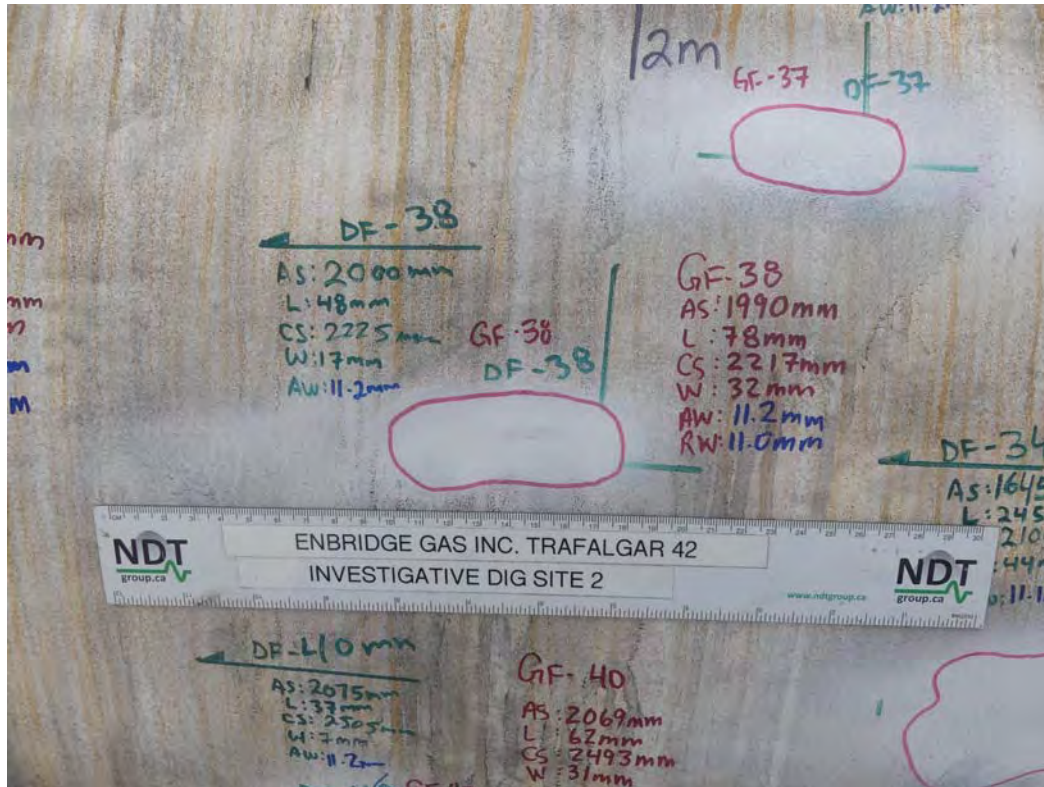 12m
GF-37
DF-37
DF-38
AS: 2000mm
L: 48mm
CS: 2225mm
W: 17mm
AW: 11.2mm
GF-38
DF-38
GF-38
AS: 1990mm
L: 78mm
CS: 2217mm
W: 32mm
AW: 11.2mm
RW: 11.0mm
DF-34
AS: 1645
L: 245
NDT
group.ca
ENBRIDGE GAS INC. TRAFALGAR 42
INVESTIGATIVE DIG SITE 2
www.ndtgroup.ca
NDT
group.ca
DF-40 mm
AS: 2075mm
L: 37mm
CS: 2505mm
W: 7mm
AW: 11.2mm
GF-40
AS: 2069mm
L: 62mm
CS: 2493mm
W: 31mm